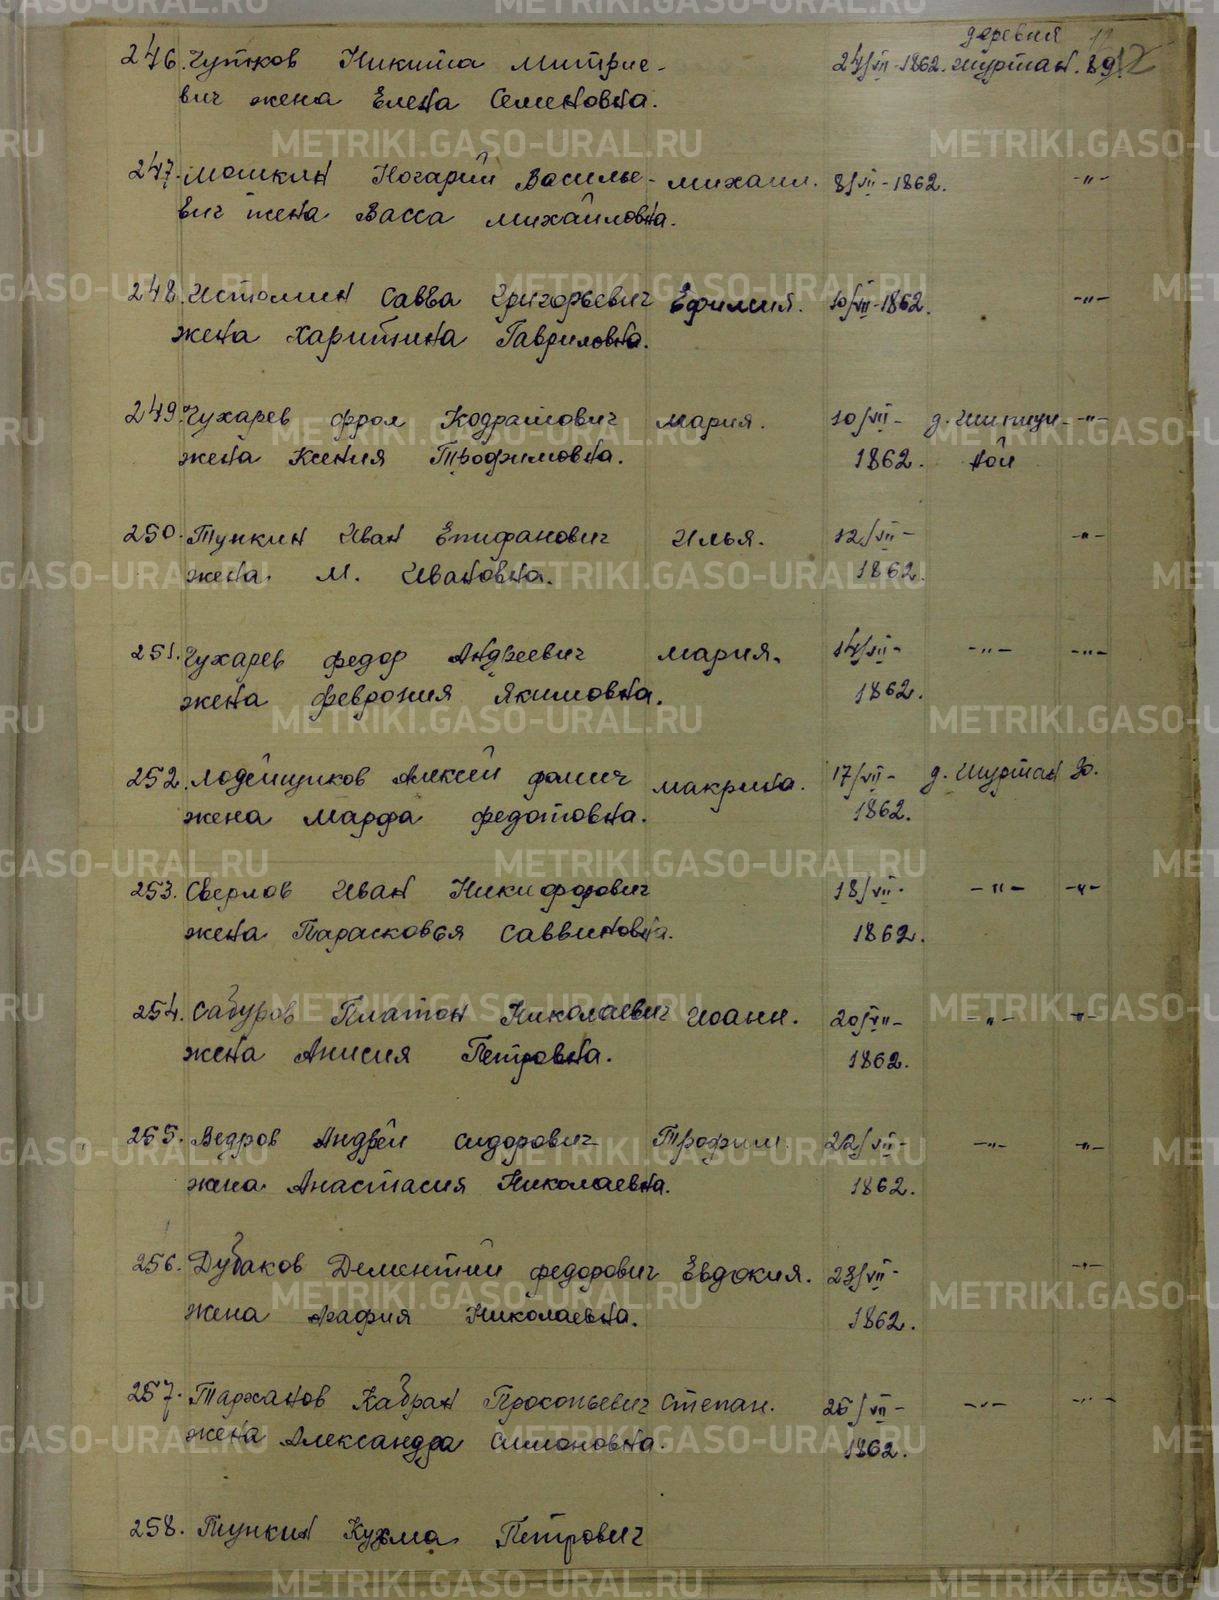 деревня 12
246. Чутков Никита Митрие- 24/VII-1862. Шуртан. 89.
вич жена Елена Семеновна.
247. Мошкин Ногарий Василье- Михаил. 8/VII-1862. -"-
вич жена Васса Михайловна.
248. Истомин Савва Григорьевич Ефимия. 10/VII-1862. -"-
жена Харитина Гавриловна.
249. Чухарев Фрол Кодратович Мария. 10/VII- д. Шипицы- -"-
жена Ксения Трофимовна. 1862. ной
250. Тункин Иван Епифанович Илья. 12/VII- -"-
жена М. Ивановна. 1862.
251. Чухарев Федор Андреевич Мария. 14/VII- -"- -"-
жена Феврония Якимовна. 1862.
252. Лодейщиков Алексей Фомич Макрина. 17/VII- д. Шуртан 90.
жена Марфа Федотовна. 1862.
253. Сверлов Иван Никифорович 18/VII- -"- -"-
жена Парасковья Саввиновна. 1862.
254. Сабуров Платон Николаевич Иоанн. 20/VII- -"- -"-
жена Анисия Петровна. 1862.
255. Ведров Андрей Сидорович Трофим 22/VII- -"- -"-
жена Анастасия Николаевна. 1862.
256. Дубаков Дементий Федорович Евдокия. 23/VII- -"-
жена Агафия Николаевна. 1862.
257. Таржанов Кабран Прокопьевич Степан. 25/VII- -"- -"-
жена Александра Симоновна. 1862.
258. Тункин Кузма Петрович
METRIKI.GASO-URAL.RU